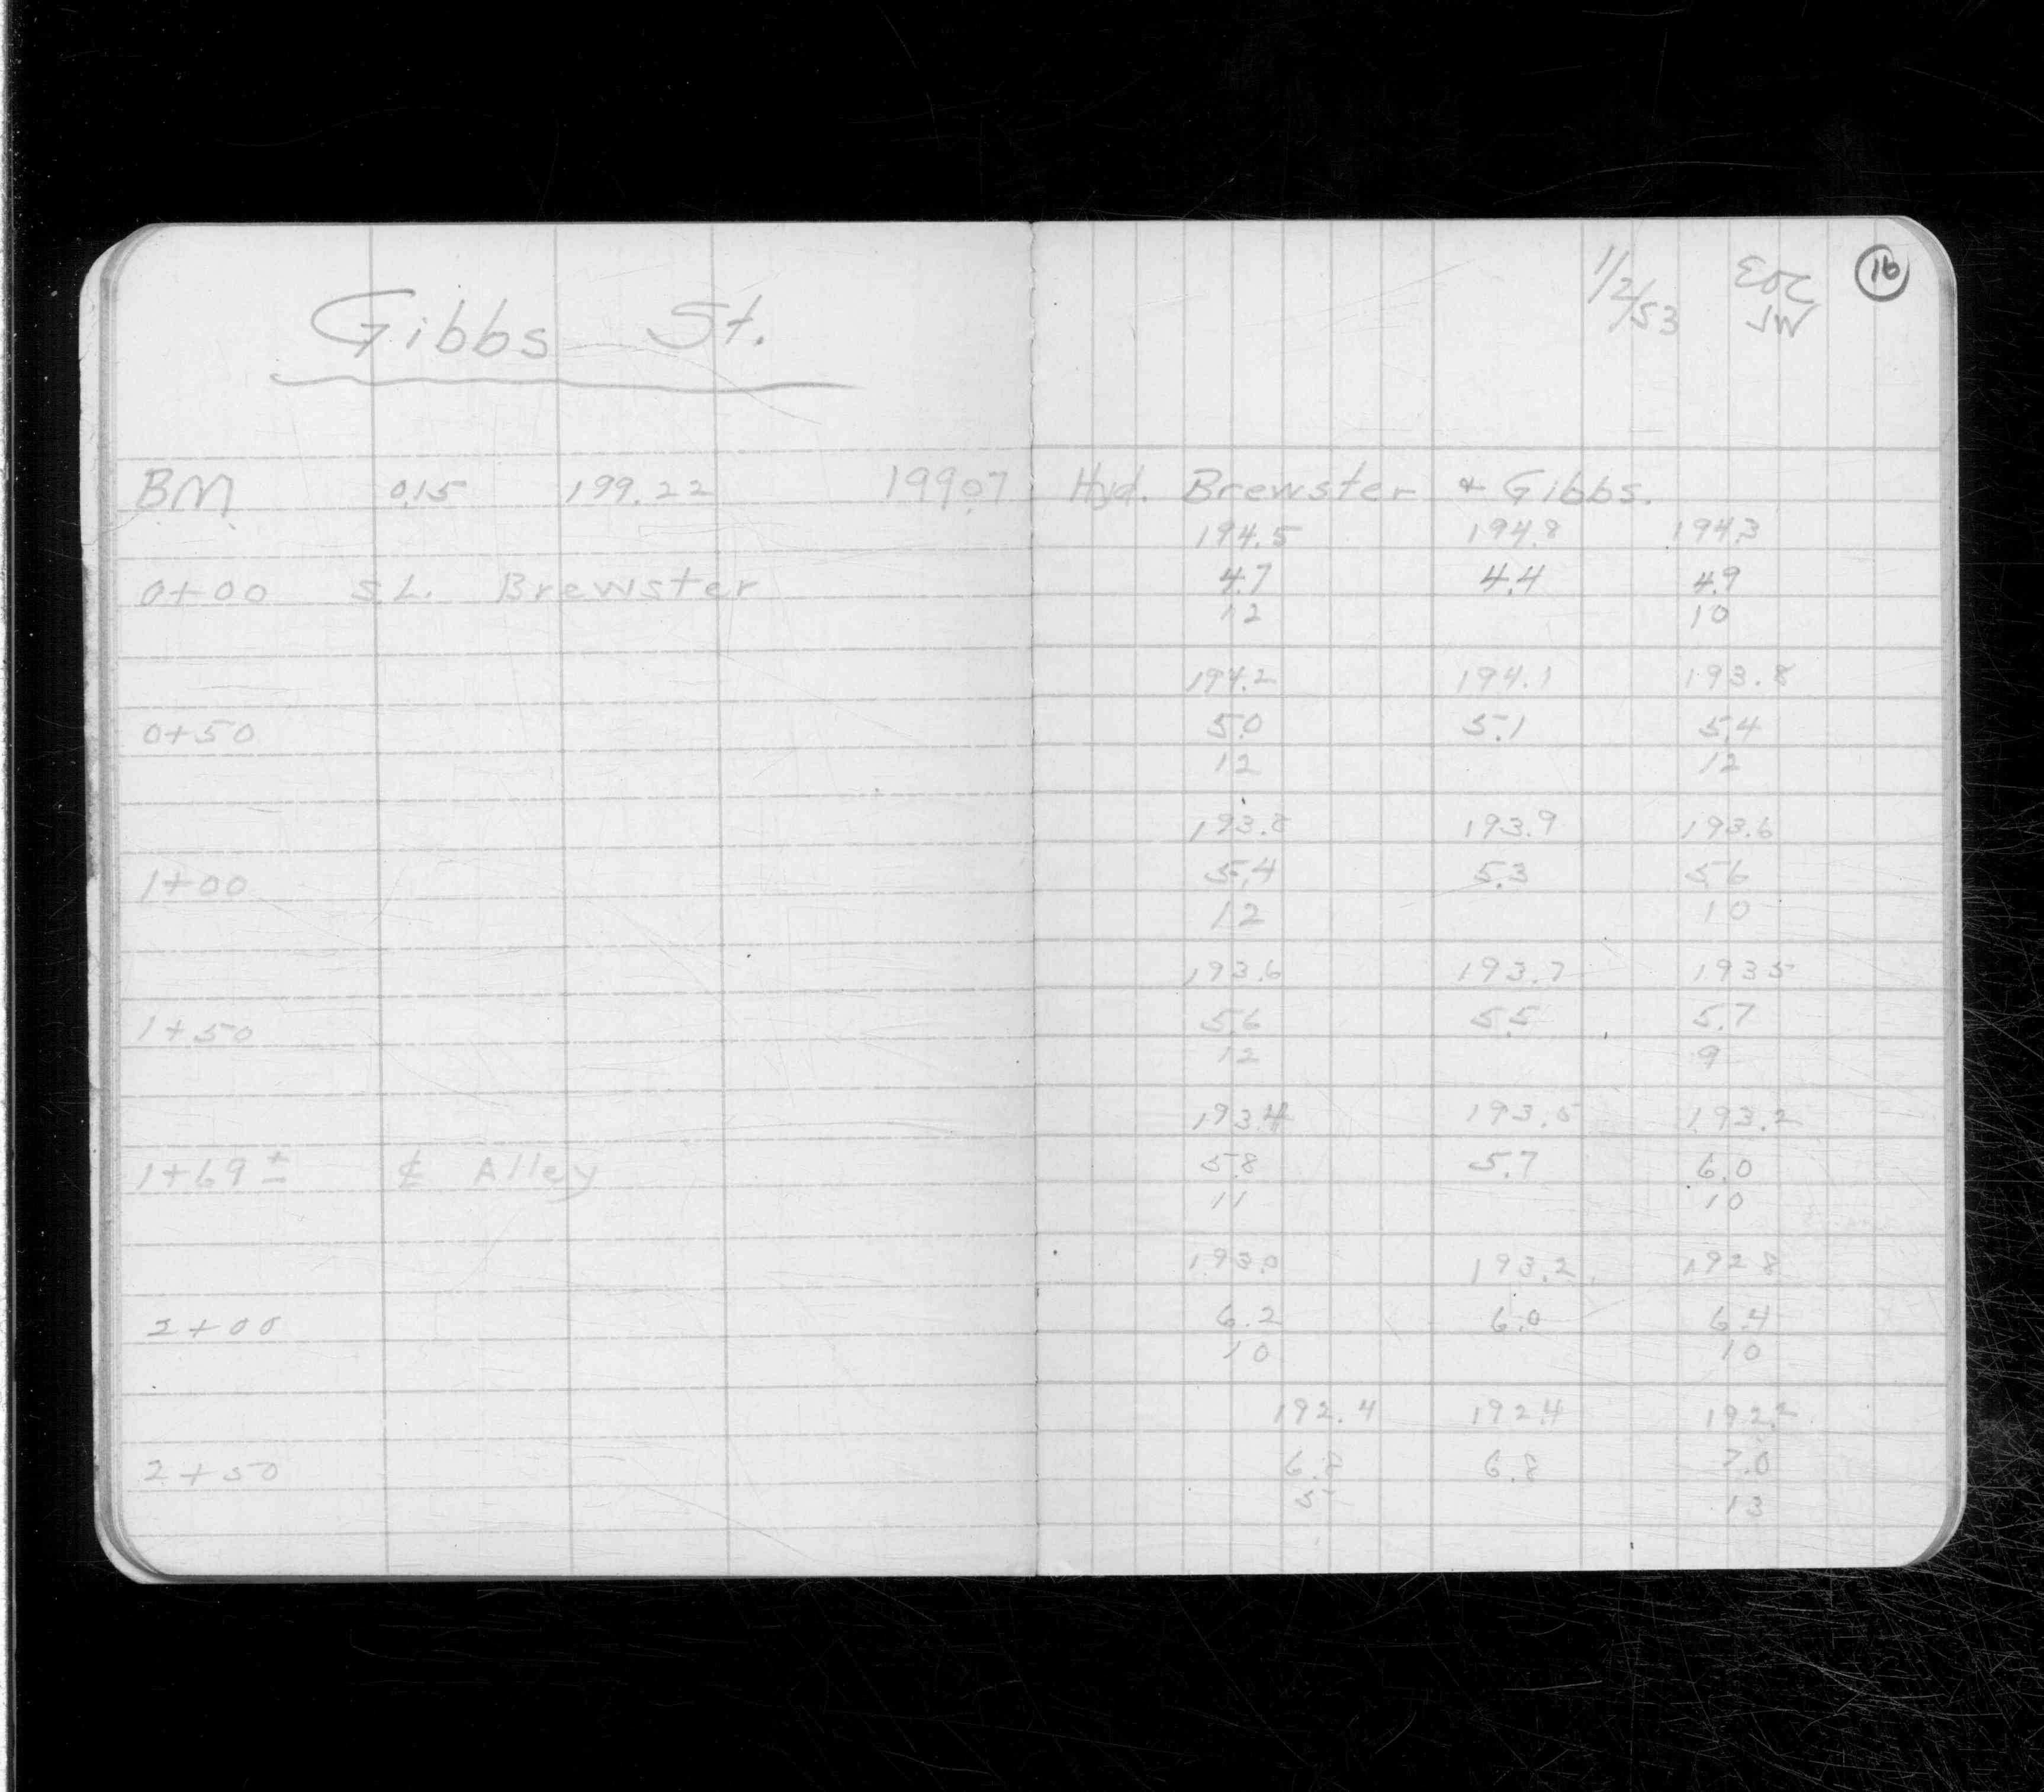 Gibbs St.
1/2/53 EOC 16
JW
BM 0.15 199.22 199.07 Hyd. Brewster & Gibbs.
194.5 194.8 194.3
0+00 S.L. Brewster 4.7 4.4 4.9
12 10
194.2 194.1 193.8
0+50 5.0 5.1 5.4
12 12
193.8 193.9 193.6
1+00 5.4 5.3 5.6
12 10
193.6 193.7 193.5
1+50 5.6 5.5 5.7
12 9
193.4 193.5 193.2
1+69± ℄ Alley 5.8 5.7 6.0
11 10
193.0 193.2 192.8
2+00 6.2 6.0 6.4
10 10
192.4 192.4 192.2
2+50 6.8 6.8 7.0
5 13